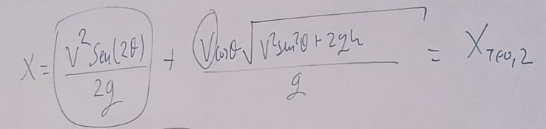 X = V² Sen(2θ) / 2g + Vcosθ √(V²sen²θ + 2gh) / g = X_Teo,2